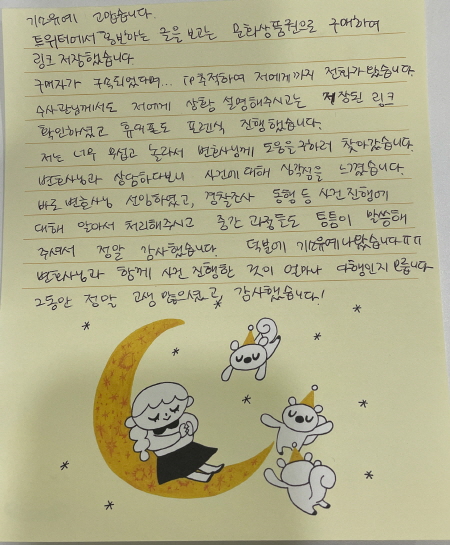 기소유예 고맙습니다.
트위터에서 홍보하는 글을 보고는 문화상품권으로 구매하여
링크 저장했습니다
구매자가 구속되었다며... IP추적하여 저에게까지 전화가 왔습니다.
수사관님께서도 저에게 상황 설명해주시고는 저장된 링크
확인하셨고 휴대폰도 포렌식 진행했습니다.
저는 너무 무섭고 놀라서 변호사님께 도움을 구하러 찾아갔습니다.
변호사님과 상담하다보니 사건에 대해 심각성을 느꼈습니다.
바로 변호사님 선임하였고, 경찰조사 동행 등 사건 진행에
대해 알아서 처리해주시고 중간 과정들도 틈틈이 말씀해
주셔서 정말 감사했습니다. 덕분에 기소유예 나왔습니다ㅠㅠ
변호사님과 함께 사건 진행한 것이 얼마나 다행인지 모릅니다
그동안 정말 고생 많으셨고, 감사했습니다!